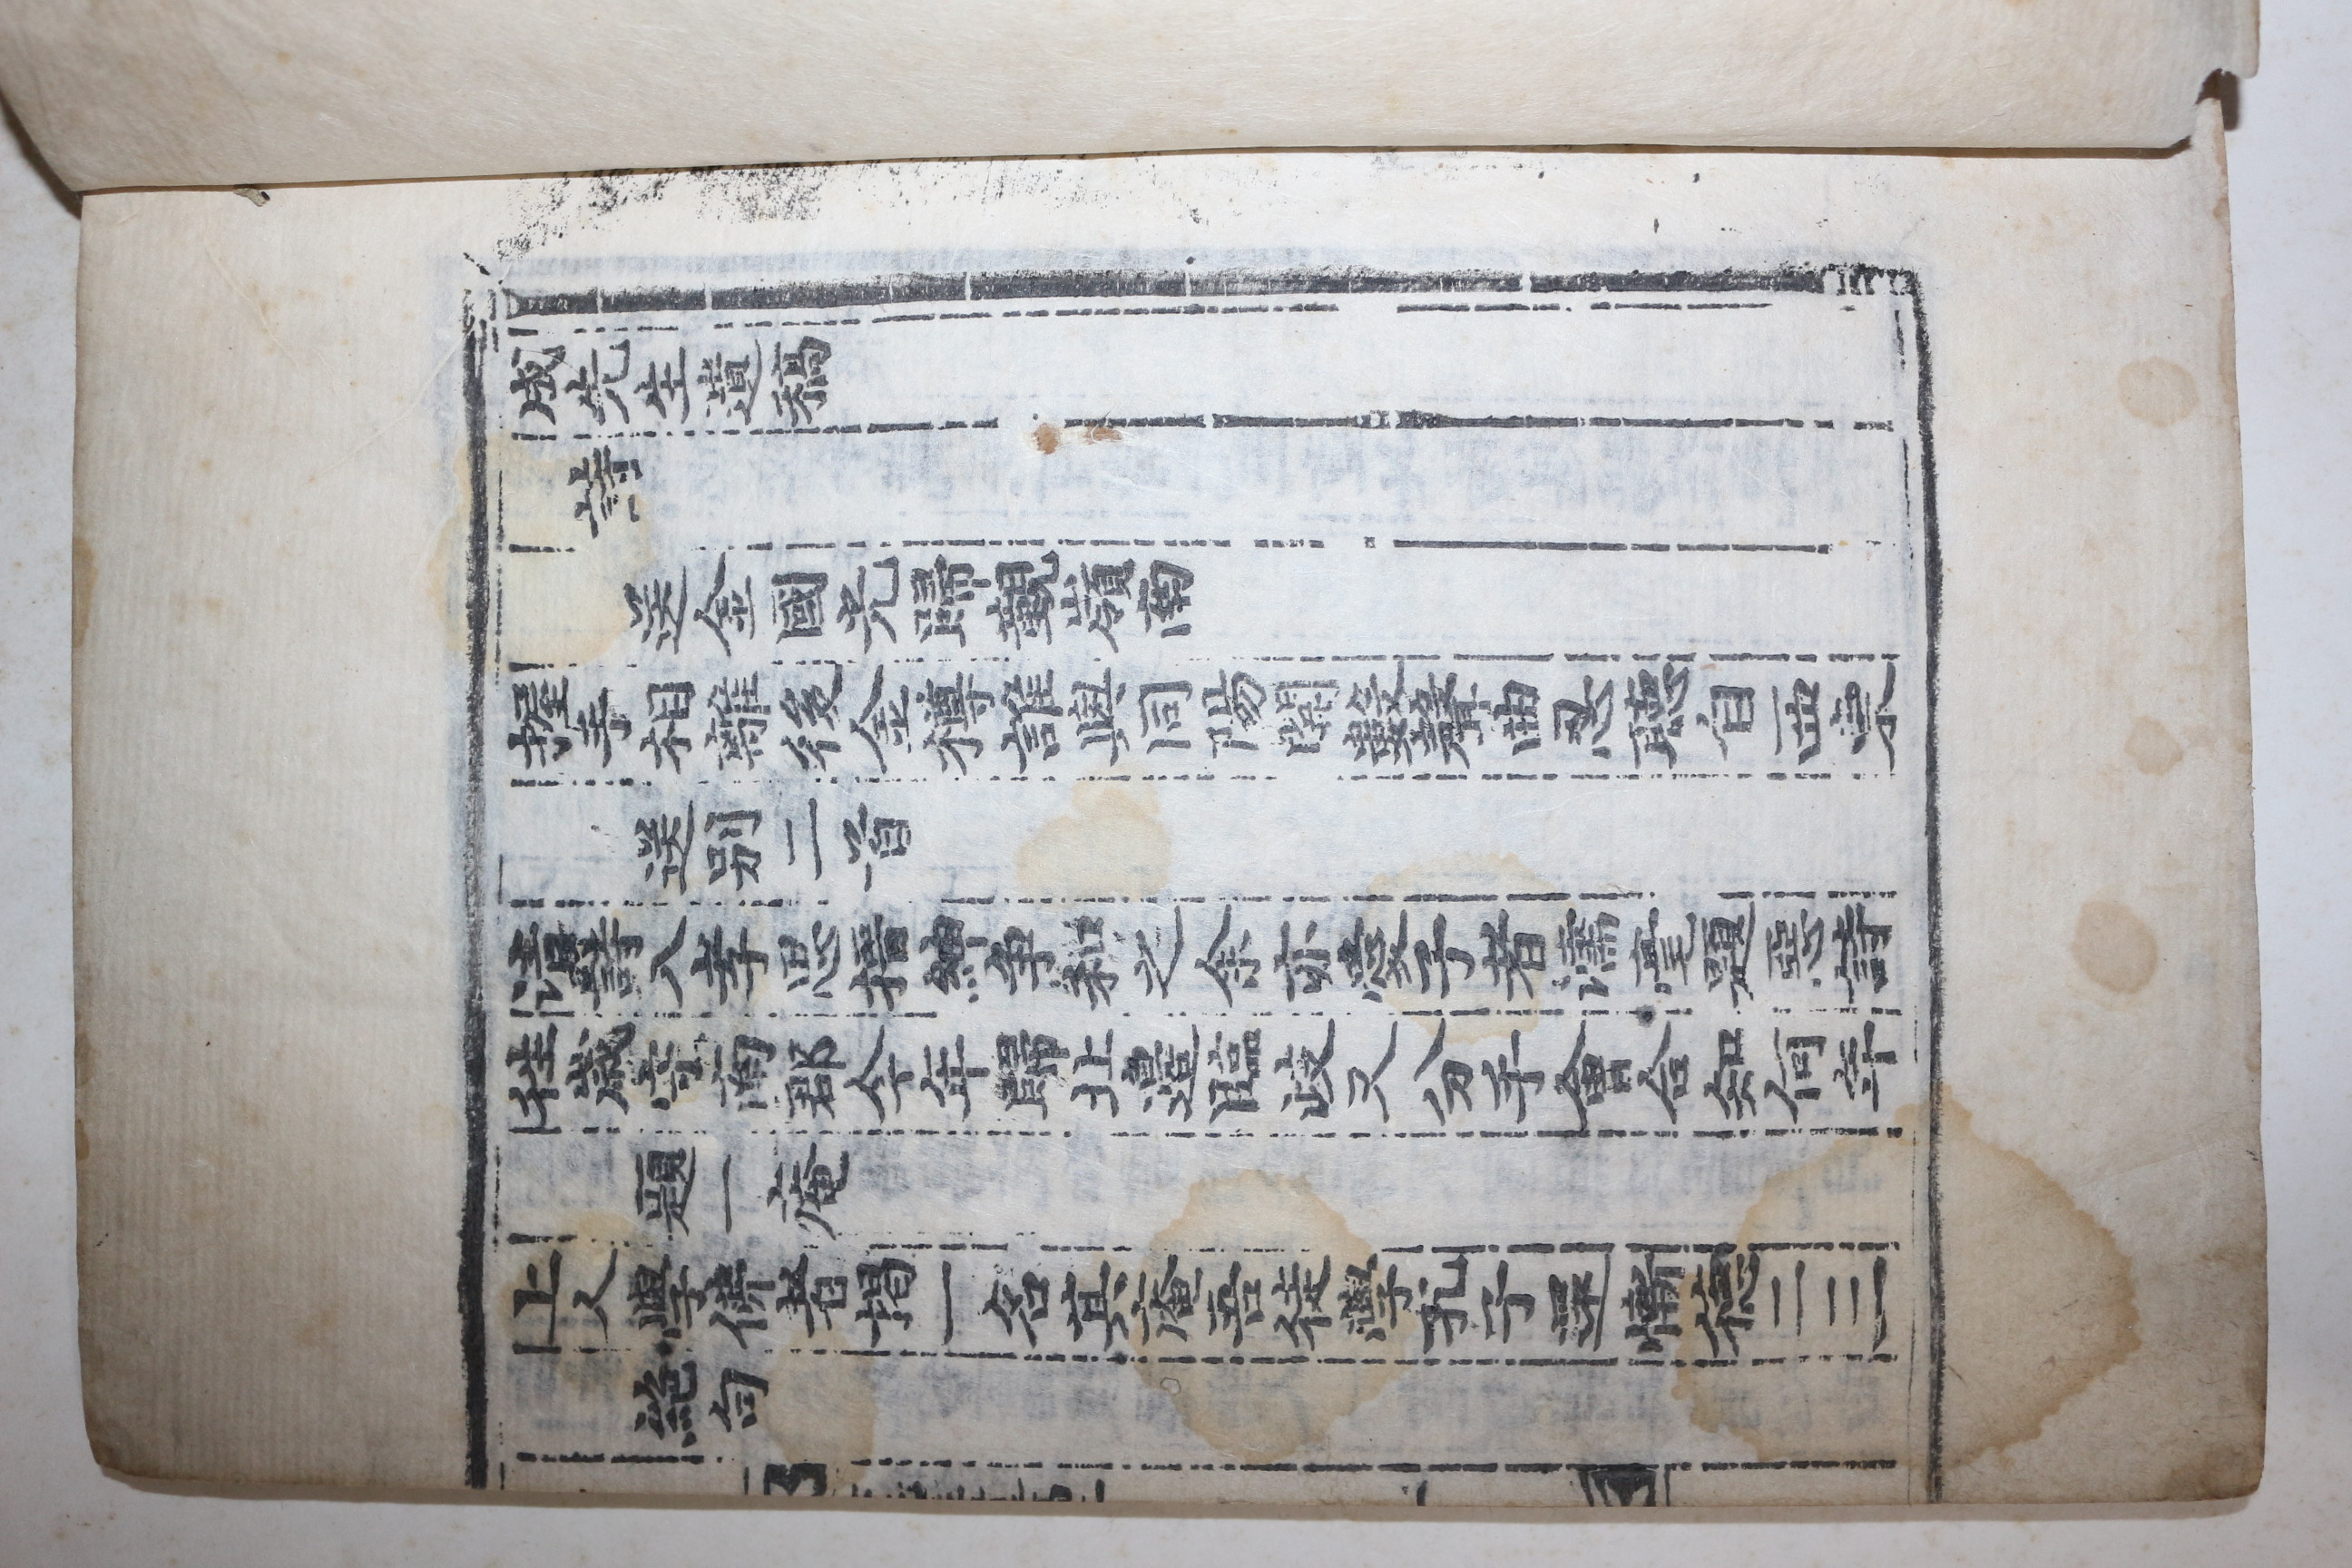 成先生遺稿
詩
送金國光歸覲嶺南
握手相離後金樽誰與同陽關數聲曲忍聽自西東
送別二首
請詩八孝思搢紳爭和之余亦愛子者濡毫題惡詩
往歲守南郡今年歸北邊臨歧又分手會合知何年
題一庵
上人學佛者揭一名其庵吾徒學孔子還慚德二三
絶句